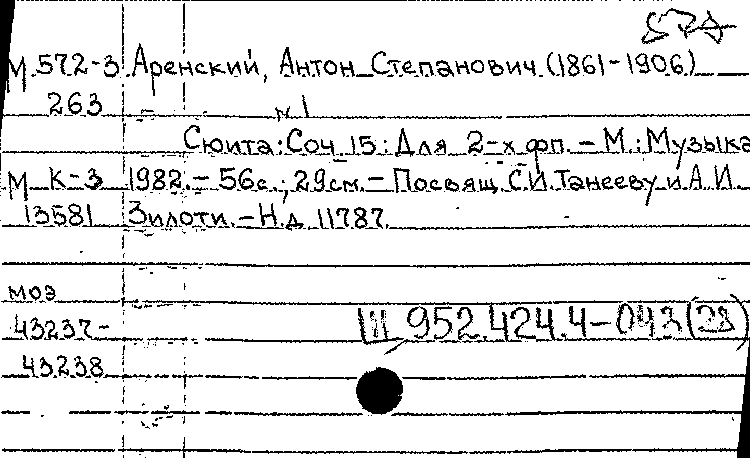 М 572-3 Аренский, Антон Степанович (1861-1906)
263
№1
Сюита: Соч. 15: Для 2-х фп. - М.: Музыка
М К-3 1982. - 56с.; 29см. - Посвящ. С.И. Танееву и А.И.
13581 Зилоти. - Н.д. 11787.
моэ
43237-
43238
Ш 952.424.4-043(28)